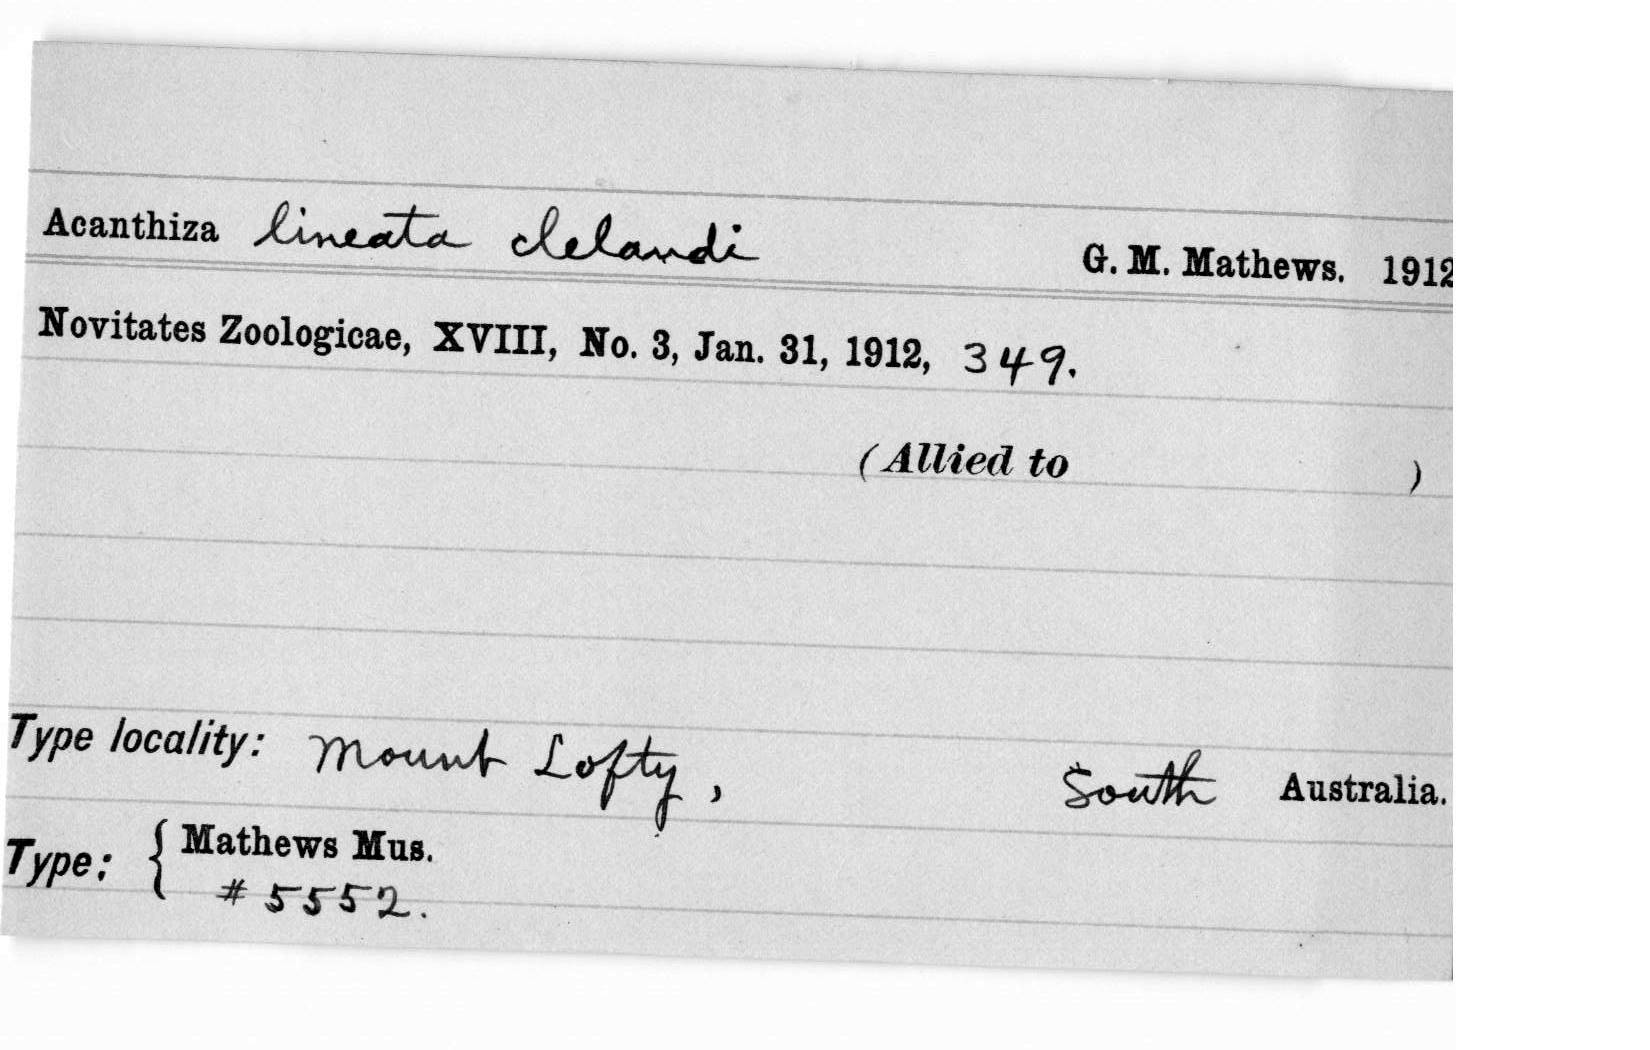 Acanthiza lineata clelandi G. M. Mathews. 1912
Novitates Zoologicae, XVIII, No. 3, Jan. 31, 1912, 349.
(Allied to )
Type locality: Mount Lofty, South Australia.
Type: { Mathews Mus.
# 5552.